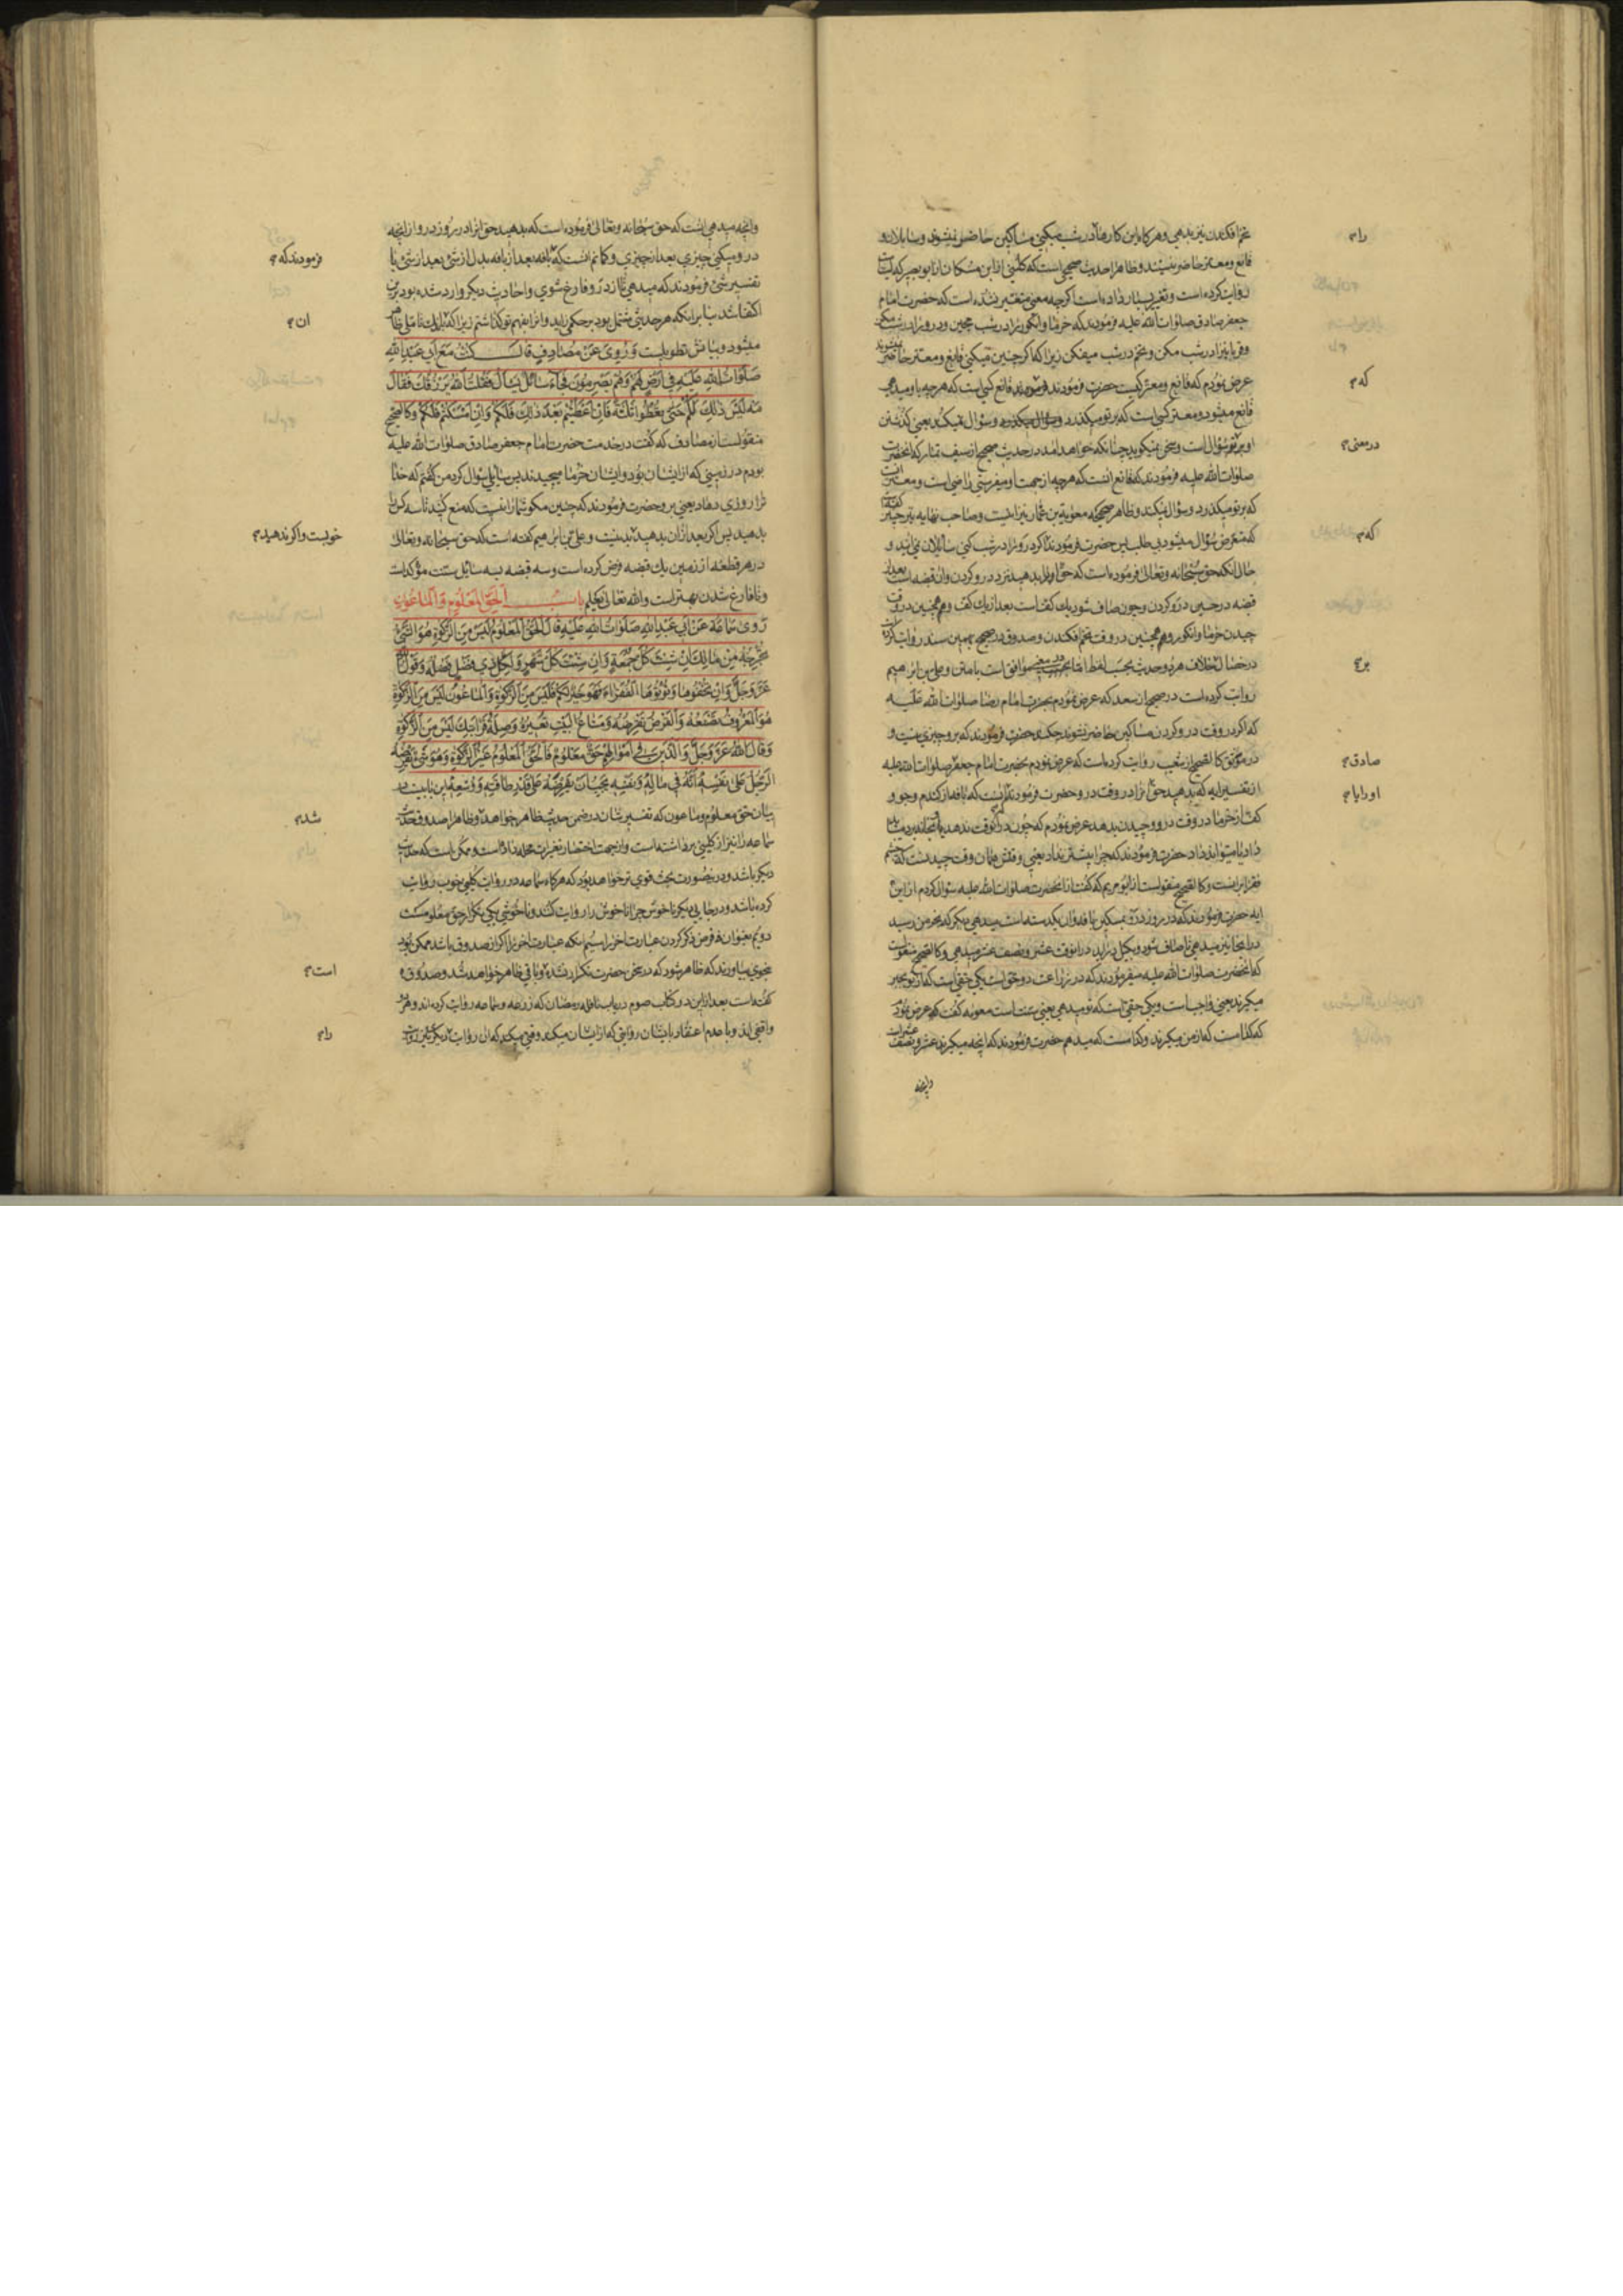 تخم افکندن نیز بدهی و هر کاه این کارها را در شب میکنی مساکین حاضر نمیشوند و سایلان و
قانع و معتر حاضر نیستند و ظاهرا حدیث صحیحی است که کلینی از ابن مسکان از ابو بصیر که لیث است
روایت کرده است و تغییر بسیار داده است اکر چه معنی متغیر نشده است که حضرت امام
جعفر صادق صلوات الله علیه فرمودند که خرما و انکور را در شب مچین و درو را در شب مکن
و قربانی را در شب مکن و تخم در شب میفکن زیرا که اکر چنین میکنی قانع و معتر حاضر نمیشوند
عرض نمودم که قانع و معتر کیست حضرت فرمودند قانع کسی است که هر چه باو میدهی
قانع میشود و معتر کسی است که بر تو میکذرد و سؤال میکند یعنی کذشتن
او بر تو سؤال است و سخن نمیکوید چنانکه خواهد امد در حدیث صحیح از سیف تمار که انحضرت
صلوات الله علیه فرمودند که قانع انست که هر چه از جهت او میفرستی راضی است و معتر انست
که بر تو میکذرد و سؤال میکند و ظاهر صحیحه معویة بن عمار نیز اینست و صاحب نهایه نیز چنین کفته است
که متعرض سؤال میشود بی طلب پس حضرت فرمودند اکر درو را در شب کنی سائلان نمی ایند و
حال انکه حق سبحانه و تعالی فرموده است که حق او را بدهید نزد درو کردن و ان قبضه است بعد از
قبضه در حین درو کردن و چون صاف شود یك کف است بعد از یك کف و همچنین در وقت
چیدن خرما و انکور و همچنین در وقت تخم افکندن و صدوق در صحیح بهمین سند روایت کرده
در خصال بخلاف هر دو حدیث بحسب لفظ اما بحسب معنی موافق است با متن و علی بن ابراهیم
روایت کرده است در صحیح از سعد که عرض نمودم بحضرت امام رضا صلوات الله علیه
که اکر در وقت درو کردن مساکین حاضر نشوند چکند حضرت فرمودند که بر و چیزی نیست و
در موثق کالصحیح از شعیب روایت کرده است که عرض نمودم بحضرت امام جعفر صلوات الله علیه
از تفسیر ایه که بدهید حق انرا در وقت درو حضرت فرمودند انست که بافه از کندم و جو و
کف از خرما در وقت درو و چیدن بدهد عرض نمودم که چون در انوقت ندهد بخانه رود میتواند
داد یا میتواند داد حضرت فرمودند که چرا پیشتر نداد یعنی وقتش همان وقت چیدنست که
فقرا براینست و کالصحیح منقولست از ابو مریم که کفت از انحضرت صلوات الله علیه سؤال کردم از این
ایه حضرت فرمودند که در روز درو بمسکین بافه و ان یکدسته است میدهی دیکر که بخرمن رسید
در انجا نیز میدهی تا صاف شود و بکیل دراید در انوقت عشر و نصف عشر میدهی و کالصحیح منقولست
که انحضرت صلوات الله علیه میفرمودند که در زراعت دو حق است یکی حقی است که از تو بجبر
میکیرند یعنی واجب است و یکی حقی است که تو میدهی یعنی سنت است معویه کفت که عرض نمودم
که کدامست که از من میکیرند و کدامست که میدهم حضرت فرمودند که انچه میکیرند عشر و نصف عشر است
وانچه
را
که
در معنی
که
صادق
او را یا
وانچه میدهی انست که حق سبحانه و تعالی فرموده است که بدهید حق انرا در روز درو از انچه
درو میکنی چیزی بعد از چیزی و کمانم انست که بافه بعد از بافه بدل از شئ بعد از شئ یا
تفسیر شئ فرمودند که میدهی تا از درو فارغ شوی و احادیث دیکر وارد شده بود برین
اکتفا شد بنا بر اینکه هر حدیثی مشتمل بود بر حکمی زاید و انرا بفهم تو کذاشتم زیرا که باندك تأملی ظاهر
میشود و بیانش تطویلست وَرُوِیَ عَنْ مُصَادِفٍ قالَ کُنْتُ مَعَ أَبی عَبْدِ اللهِ
صَلَواتُ اللهِ عَلَیْهِ فی اَرْضٍ لَهُ وَهُمْ یَصْرِمُونَ فَجاءَ سائلٌ یَسْأَلُ فَقُلْتُ اللهُ یَرْزُقُكَ فَقالَ
مَهْ لَیْسَ ذلِكَ لَکُمْ حَتّی تُعْطُوا ثَلثَةً فَاِنْ اَعْطَیْتُمْ بَعْدَ ذلِكَ فَلَکُمْ وَاِنْ اَمْسَکْتُمْ فَلَکُمْ و کالصحیح
منقولست از مصادف که کفت در خدمت حضرت امام جعفر صادق صلوات الله علیه
بودم در زمینی که از ایشان بود و ایشان خرما میچیدند پس سایلی سؤال کرد من کفتم که خدا
ترا روزی دهاد یعنی برو حضرت فرمودند که چنین مکو شما را نیست که منع کنید تا سه کس را
بدهید پس اکر بعد از ان بدهید بد نیست و علی بن ابراهیم کفته است که حق سبحانه و تعالی
در هر قطعه از زمین یك قبضه فرض کرده است و سه قبضه بسه سائل سنت مؤکد است
و تا فارغ شدن بهتر است والله تعالی یعلم باب الحَقِّ المَعْلُومِ وَالماعُونِ
رَوی سَماعَةُ عَنْ اَبی عَبْدِ اللهِ صَلَواتُ اللهِ عَلَیْهِ قالَ الحَقُّ المَعْلُومُ لَیْسَ مِنَ الزَّکوةِ هُوَ الشَّئُ
تُخْرِجُهُ مِنْ مالِكَ اِنْ شِئْتَ کُلَّ جُمُعَةٍ وَاِنْ شِئْتَ کُلَّ شَهْرٍ وَلِکُلِّ ذی فَضْلٍ فَضْلُهُ وَقَوْلُ اللهِ
عَزَّ وَجَلَّ وَاِنْ تُخْفُوها وَتُؤْتُوهَا الفُقَراءَ فَهُوَ خَیْرٌ لَکُمْ فَلَیْسَ مِنَ الزَّکوةِ وَالماعُونُ لَیْسَ مِنَ الزَّکوةِ
هُوَ المَعْرُوفُ تَصْنَعُهُ وَالقَرْضُ تُقْرِضُهُ وَمَتاعُ البَیْتِ تُعیرُهُ وَصِلَةُ قَرابَتِكَ لَیْسَ مِنَ الزَّکوةِ
وَقالَ اللهُ عَزَّ وَجَلَّ وَالَّذینَ فی اَمْوالِهِمْ حَقٌّ مَعْلُومٌ فَالحَقُّ المَعْلُومُ غَیْرُ الزَّکوةِ وَهُوَ شَئٌ یَفْرِضُهُ
الرَّجُلُ عَلی نَفْسِهِ اَنَّهُ فی مالِهِ وَنَفْسِهِ یَجِبُ اَنْ یَفْرِضَهُ عَلی قَدْرِ طاقَتِهِ وَوُسْعِهِ این بابیست در
بیان حق معلوم و ماعون که تفسیرشان در ضمن حدیث ظاهر خواهد و ظاهرا صدوق حدیث
سماعه را نیز از کلینی برداشته است و از جهت اختصار تغیرات مخله داده است و ممکن است که حدیث
دیکر باشد و درینصورت بحث قوی تر خواهد بود که هر کاه سماعه در روایت کلینی خوب روایت
کرده باشد و در جایی دیکر ناخوش چرا ناخوش را روایت کنند و ناخوشی یکی تکرار حق معلومست
دویم بعنوان فرض ذکر کردن عبارت اخر را سیم اینکه عبارت اخر را اکر از صدوق باشد ممکن بود
بنحوی بیاورند که ظاهر شود که در سخن حضرت تکرار نشده و باقی ظاهر خواهد شد و صدوق
کفته است بعد از این در کتاب صوم در باب نافله رمضان که زرعه و سماعه روایت کرده اند و هر دو
واقفی اند و با عدم اعتقاد بایشان روایتی که از ایشان میکند وقتی میکند که ان روایت دیکر نیز روایت
فرمودند که
ان
خوبست و اکر ندهید
شد
است
را